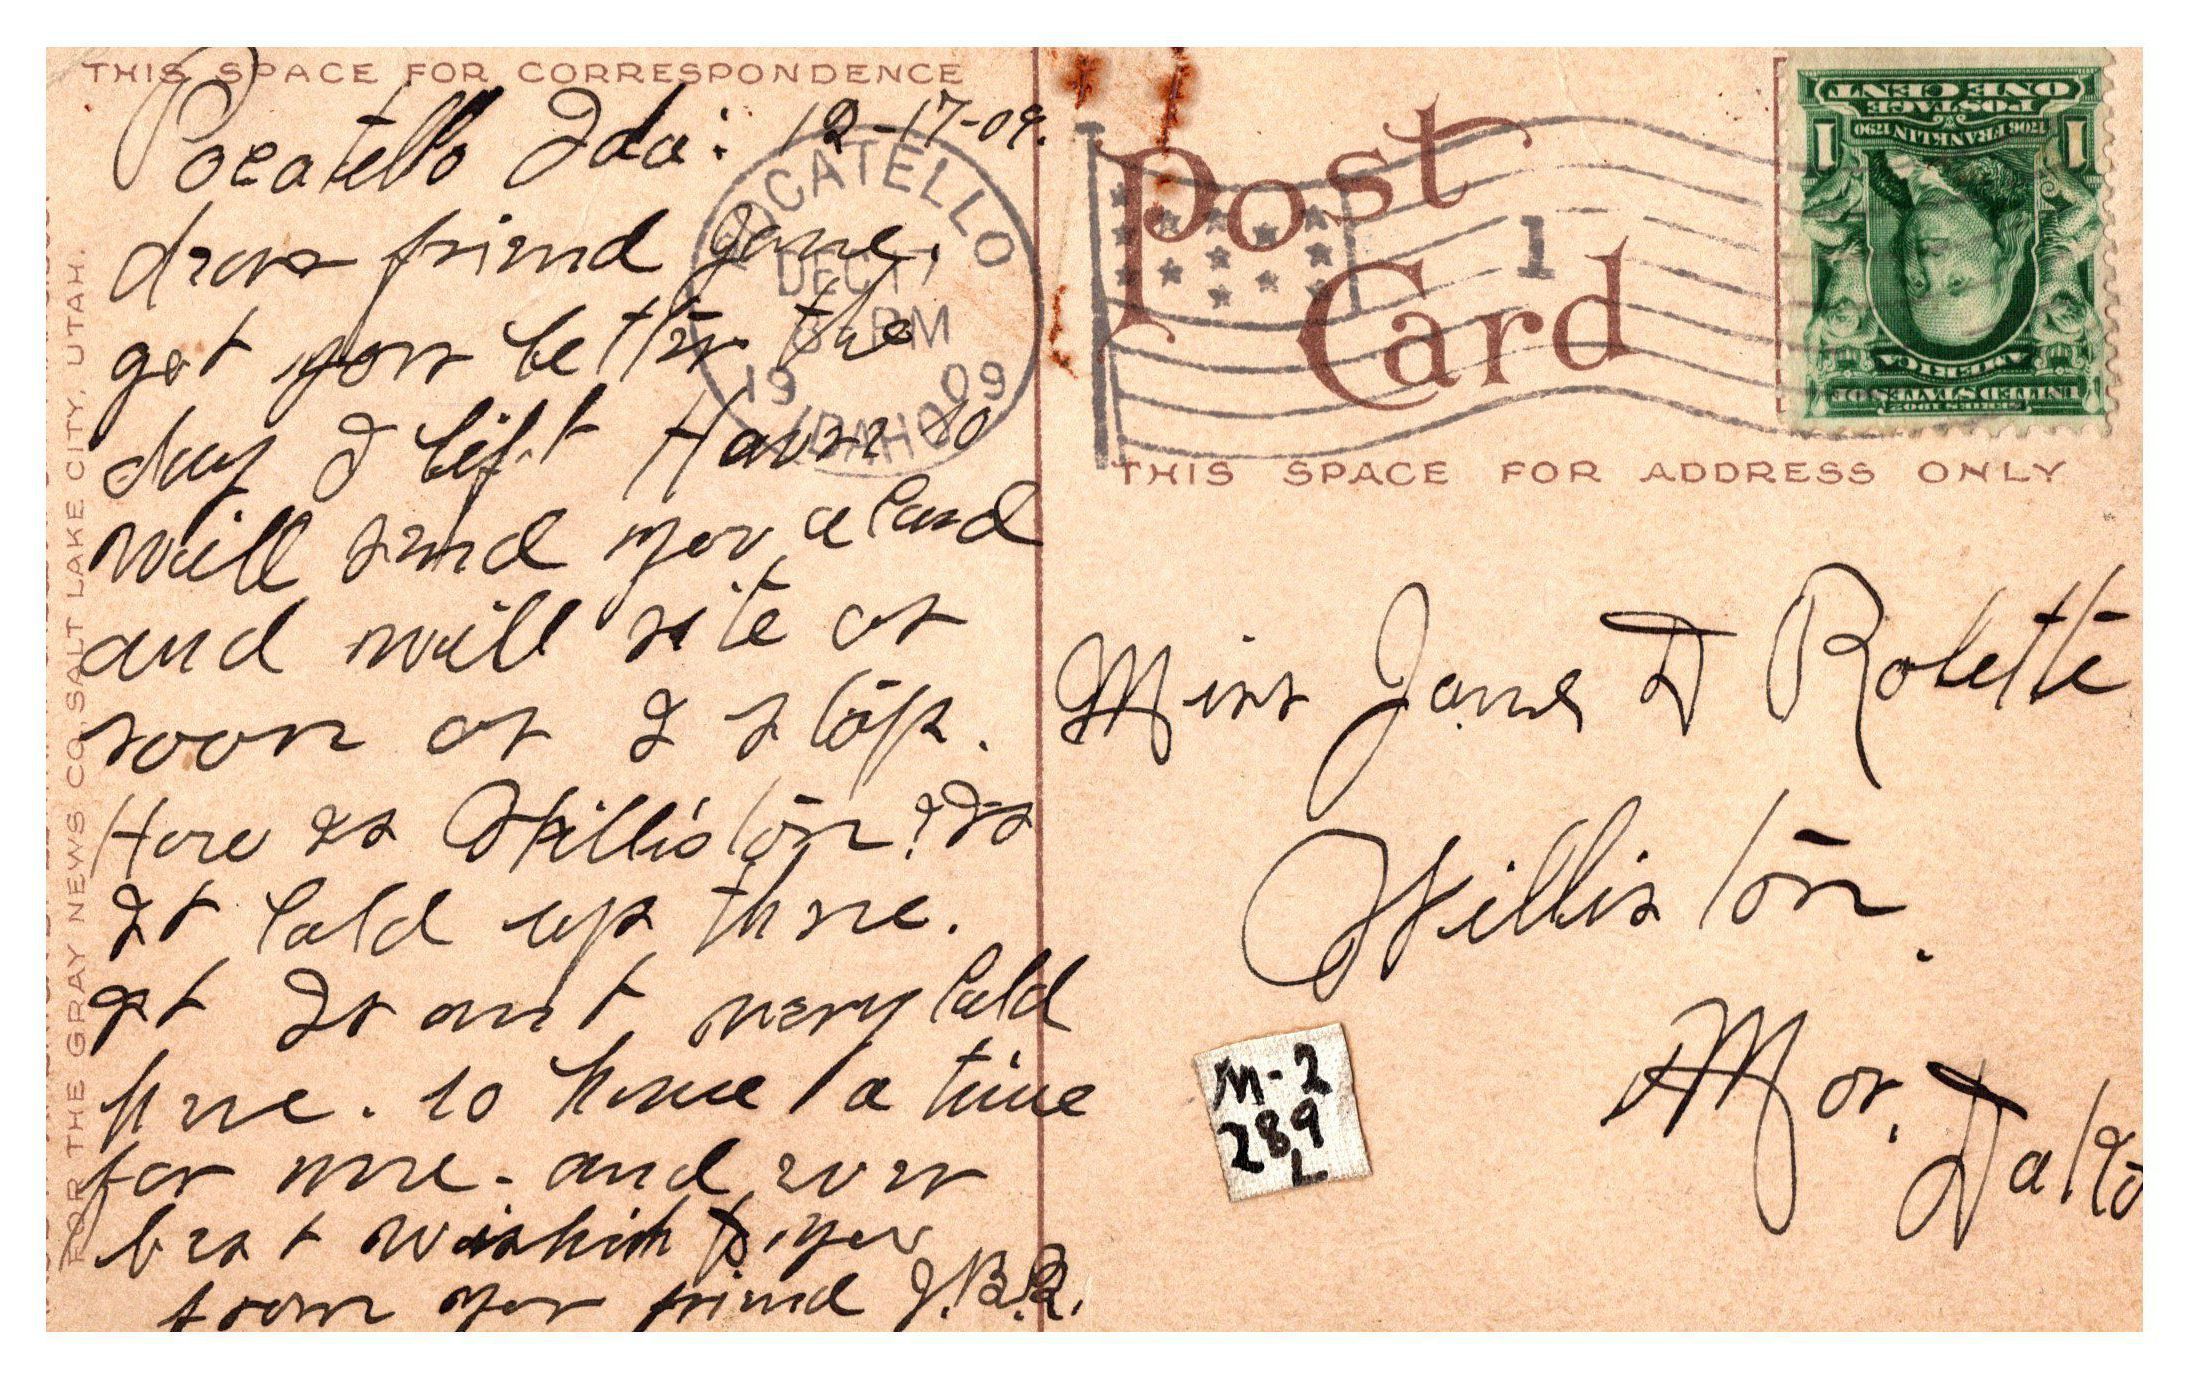 THIS SPACE FOR CORRESPONDENCE
Pocatello Ida: 12-17-09.
dear friend Jane.
got your letter the
day I left Havre so
will send you a Card
and will rite as
soon as I stop.
How is Williston? Is
It Cold up there.
It Is ant very Cold
here. to have a time
for me. and ever
best wishish to you
from your friend J.B.R.
FOR THE GRAY NEWS CO. SALT LAKE CITY, UTAH.
POCATELLO
DEC 17
PM
1909
IDAHO
Post
Card
1
THIS SPACE FOR ADDRESS ONLY
SERIES 1902
UNITED STATES OF
AMERICA
1706 FRANKLIN 1790
POSTAGE
1 ONE CENT 1
Miss Jane D Rolette
Williston.
Nor. Dako
M-2
289
L